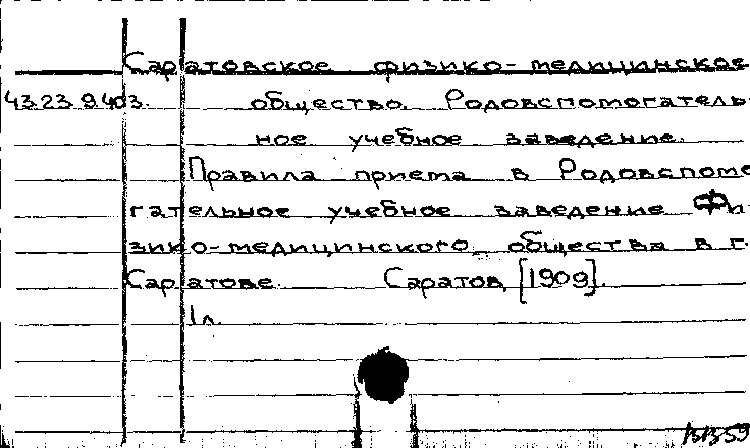 Саратовское физико-медицинское
43.23.9.403. общество. Родовспомогатель-
ное учебное заведение.
Правила приема в Родовспомо-
гательное учебное заведение Фи-
зико-медицинского общества в г.
Саратове. Саратов, [1909].
1 л.